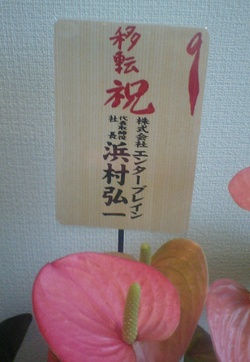 移転
祝
株式会社 エンターブレイン
代表取締役
社長
浜村弘一